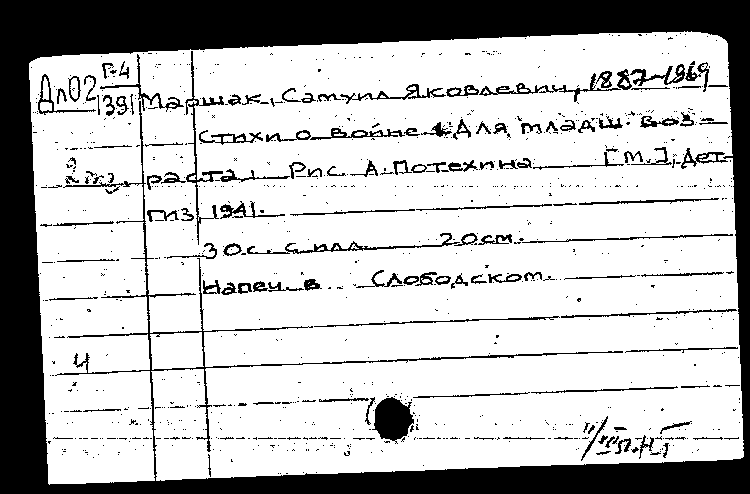 Дл02 Г-4
1391 Маршак, Самуил Яковлевич, 1887-1969
Стихи о войне. Для младш. воз-
2 экз. раста. Рис. А. Потехина [М.], Дет-
гиз, 1941.
30 с. с илл. 20 см.
Напеч. в Слободском.
4